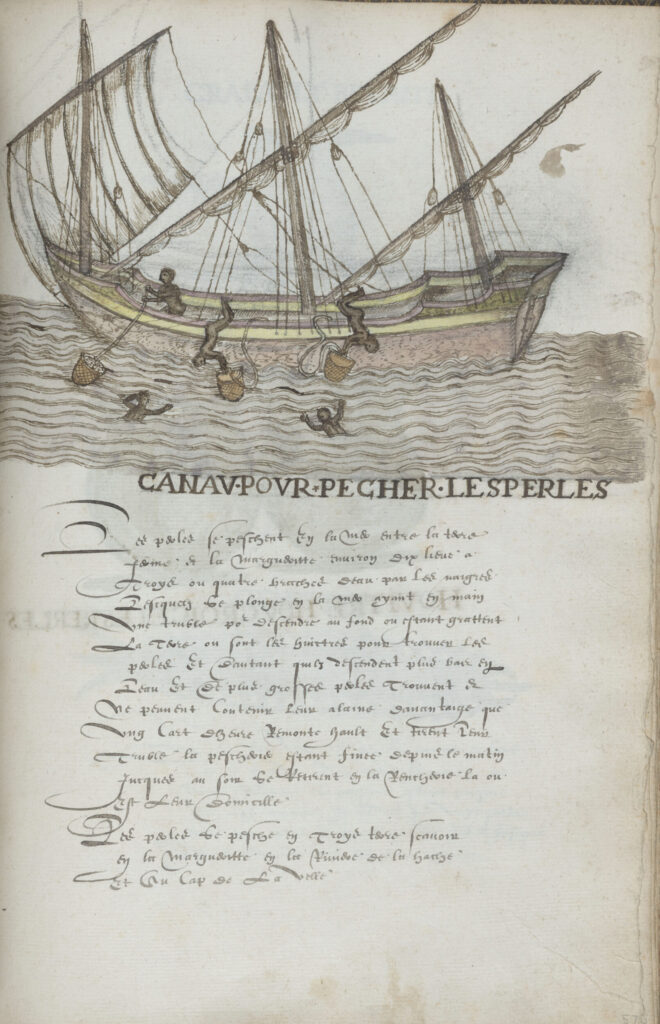 CANAV·POVR·PECHER·LESPERLES
Les perles se peschent En la mer entre la terre
ferme & la marguerite environ dix lieue a
troys ou quatre brasses deau par les naigres
Lesquelz se plonge en la mer ayant en main
Une truble por descendre au fond ou estant grattent
La Terre ou sont les huictres pour trouver Les
perles Et dautant quilz descendent plus bas en
Leau Et de plus grosses perles Trouvent &
Ne peuvent Contenir Leur alaine davantaige que
Ung Cart dheure Remonte hault Et tirent Leur
Truble la pescherie estant finee depuis le matin
Jucques au soir Se Retirent en la Rencherie La ou
Est Leur Domicille
Les perles Se pesche en Troys terre scavoir
en la marguerite en la Riviere de la hache
Et Au Cap de La velle